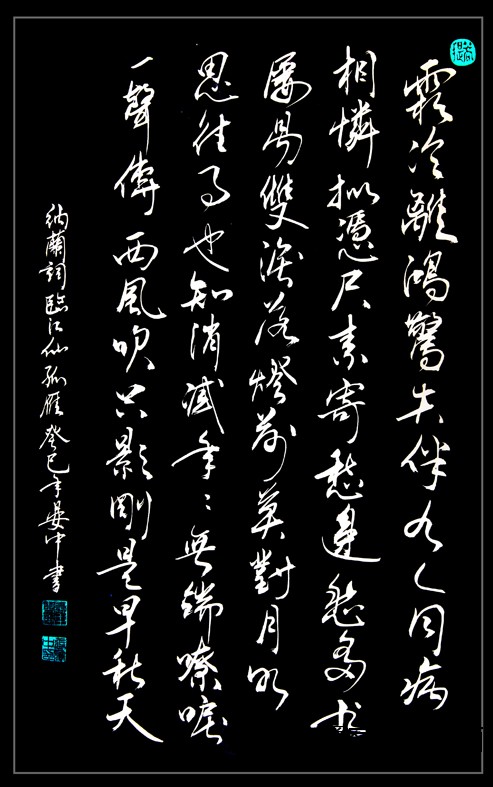 霜冷離鴻驚失伴有人同病
相憐拟憑尺素寄愁邊愁多书
屢易雙淚落燈前莫對月明
思往事也知消減年〻無端嘹唳
一聲傳西風吹只影剛是早秋天
納蘭詞臨江仙孤雁癸巳年晏中書